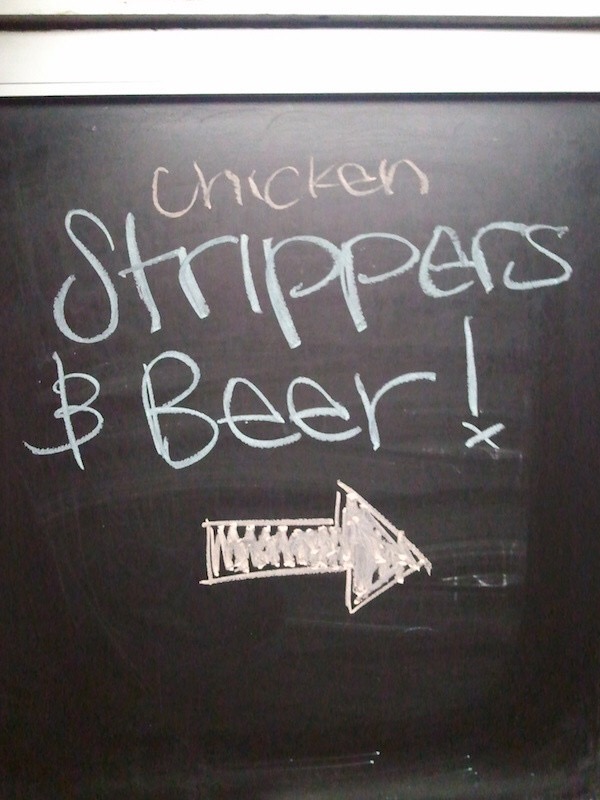 Chicken
Strippers
& Beer!